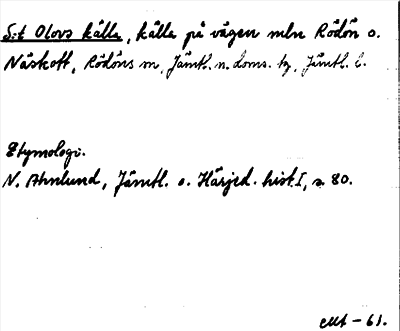 S:t Olovs källa, källa på vägen mln Rödön o.
Näskott, Rödöns sn, Jämtl. n. doms. tg, Jämtl. l.
Etymologi.
N. Ahnlund, Jämtl. o. Härjed. hist. I, s. 80.
- 61.